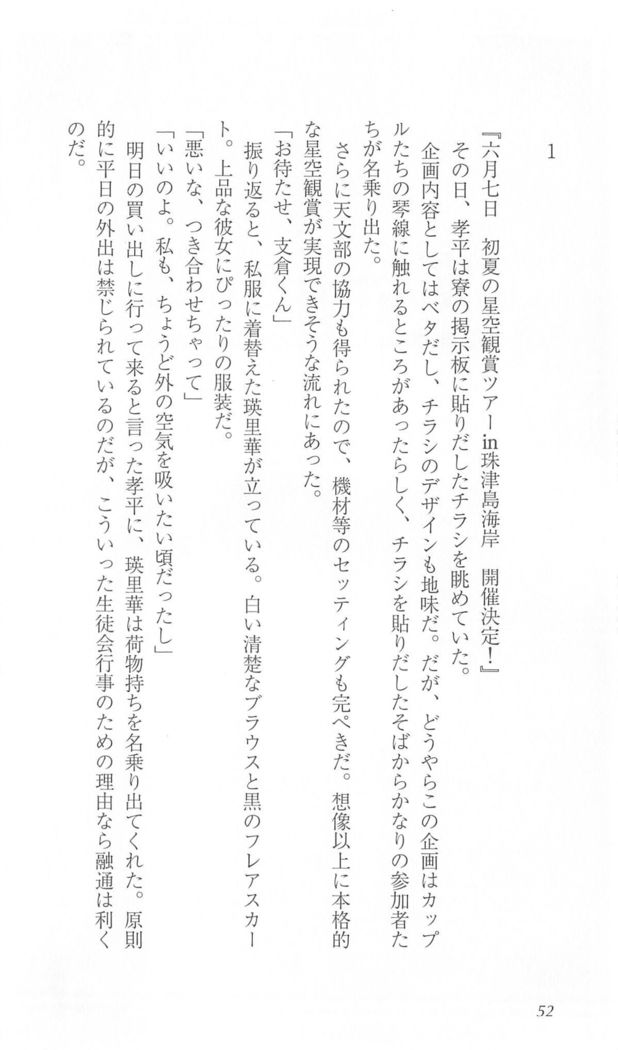 1
『六月七日　初夏の星空観賞ツアーin珠津島海岸　開催決定！』
　その日、孝平は寮の掲示板に貼りだしたチラシを眺めていた。
　企画内容としてはベタだし、チラシのデザインも地味だ。だが、どうやらこの企画はカップ
ルたちの琴線に触れるところがあったらしく、チラシを貼りだしたそばからかなりの参加者た
ちが名乗り出た。
　さらに天文部の協力も得られたので、機材等のセッティングも完ぺきだ。想像以上に本格的
な星空観賞が実現できそうな流れにあった。
「お待たせ、支倉くん」
　振り返ると、私服に着替えた瑛里華が立っている。白い清楚なブラウスと黒のフレアスカー
ト。上品な彼女にぴったりの服装だ。
「悪いな、つき合わせちゃって」
「いいのよ。私も、ちょうど外の空気を吸いたい頃だったし」
　明日の買い出しに行って来ると言った孝平に、瑛里華は荷物持ちを名乗り出てくれた。原則
的に平日の外出は禁じられているのだが、こういった生徒会行事のための理由なら融通は利く
のだ。
52